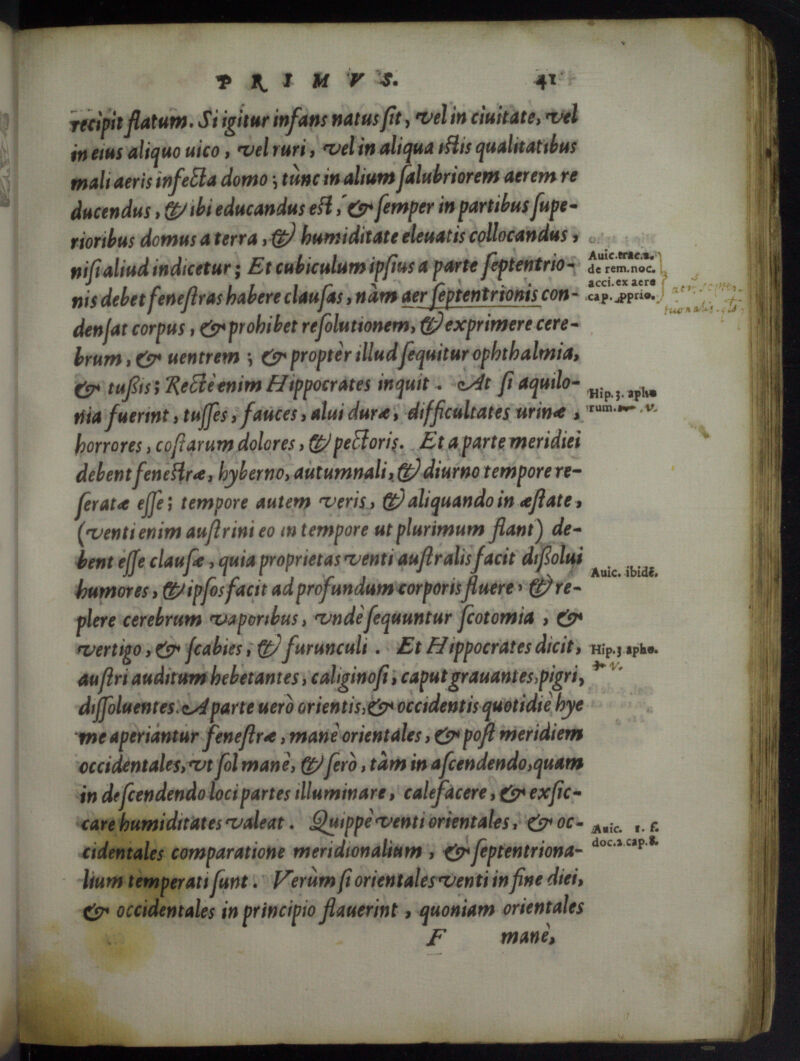 PRIMVS. 41
recipit flatum. Si igitur infans natus sit, vel in ciuitate, vel
in eius aliquo uico, vel ruri, vel in aliqua istis qualitatibus
mali aeris infecta domo; tùnc in alium salubriorem aerem re
ducendus, & ibi educandus est, & semper in partibus supe-
rioribus domus a terra, & humiditate eleuatis collocandus,
nisi aliud indicetur; Et cubiculum ipsius a parte septentrio-
nis debet fenestras habere clausas, nàm aer septentrionis con-
densat corpus, & prohibet resolutionem, & exprimere cere-
brum, & uentrem; & proptèr illud sequitur ophthalmia,
& tussis; Rectè enim Hippocrates inquit. At si aquilo-
nia fuerint, tusses, fauces, alui duræ, difficultates urinæ,
horrores, costarum dolores, & pectoris. Et a parte meridiei
debent fenestræ, hyberno, autumnali, & diurno tempore re-
seratæ esse; tempore autem veris, & aliquando in æstate,
(venti enim austrini eo in tempore ut plurimum flant) de-
bent esse clausæ, quia proprietas venti australis facit dissolui
humores, & ipsos facit ad profundum corporis fluere, & re-
plere cerebrum vaporibus, vndè sequuntur scotomia, &
vertigo, & scabies, & furunculi. Et Hippocrates dicit,
austri auditum hebetantes, caliginosi, caput grauantes, pigri,
dissoluentes. A parte uerò orientis, & occidentis quotidiè hye
me aperiantur fenestræ, manè orientales, & post meridiem
occidentales, vt sol manè, & serò, tàm in ascendendo, quam
in descendendo loci partes illuminare, calefacere, & exsic-
care humiditates valeat. Quippè venti orientales, & oc-
cidentales comparatione meridionalium, & septentriona-
lium temperati sunt. Verùm si orientales venti in fine diei,
& occidentales in principio flauerint, quoniam orientales
F manè,
Auic.trac.2.
de rem.noc.
acci.ex aere
cap. ꝓprio.
Hip.3. apho
rum.
Auic. ibidē.
Hip.3 apho.
Auic. 1. f.
doc.2.cap.8.